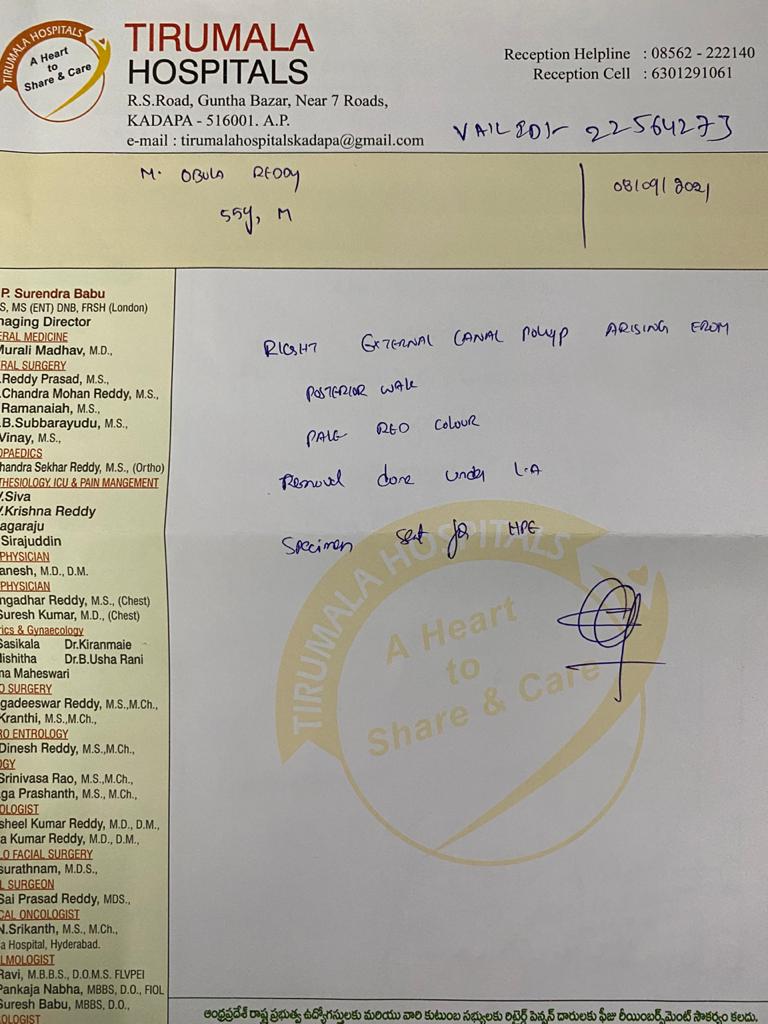 TIRUMALA HOSPITALS
A Heart
to
Share & Care
TIRUMALA
HOSPITALS
R.S.Road, Guntha Bazar, Near 7 Roads,
KADAPA - 516001. A.P.
e-mail : tirumalahospitalskadapa@gmail.com
Reception Helpline : 08562 - 222140
Reception Cell : 6301291061
22564273
M. OBULA REDDY
55y, M
08/09/2021
P. Surendra Babu
S, MS (ENT) DNB, FRSH (London)
naging Director
ERAL MEDICINE
Murali Madhav, M.D.,
RAL SURGERY
.Reddy Prasad, M.S.,
.Chandra Mohan Reddy, M.S.,
Ramanaiah, M.S.,
.B.Subbarayudu, M.S.,
Vinay, M.S.,
OPAEDICS
handra Sekhar Reddy, M.S., (Ortho)
THESIOLOGY, ICU & PAIN MANGEMENT
.Siva
.Krishna Reddy
agaraju
Sirajuddin
PHYSICIAN
anesh, M.D., D.M.
PHYSICIAN
ngadhar Reddy, M.S., (Chest)
Suresh Kumar, M.D., (Chest)
rics & Gynaecology
Sasikala Dr.Kiranmaie
lishitha Dr.B.Usha Rani
na Maheswari
O SURGERY
gadeeswar Reddy, M.S.,M.Ch.,
Kranthi, M.S.,M.Ch.,
RO ENTROLOGY
Dinesh Reddy, M.S.,M.Ch.,
OGY
Srinivasa Rao, M.S.,M.Ch.,
ga Prashanth, M.S., M.Ch.,
OLOGIST
sheel Kumar Reddy, M.D., D.M.,
a Kumar Reddy, M.D., D.M.,
LO FACIAL SURGERY
surathnam, M.D.S.,
L SURGEON
Sai Prasad Reddy, MDS.,
CAL ONCOLOGIST
N.Srikanth, M.S., M.Ch.,
a Hospital, Hyderabad.
LMOLOGIST
Ravi, M.B.B.S., D.O.M.S. FLVPEI
Pankaja Nabha, MBBS, D.O., FIOL
Suresh Babu, MBBS, D.O.,
OLOGIST
RIGHT EXTERNAL CANAL POLYP ARISING FROM
POSTERIOR WALL
PALE RED COLOUR
Removal done under L.A
Specimen sent for HPE
TIRUMALA HOSPITALS
A Heart
to
Share & Care
ఆంధ్రప్రదేశ్ రాష్ట్ర ప్రభుత్వ ఉద్యోగస్తులకు మరియు వారి కుటుంబ సభ్యులకు రిటైర్డ్ పెన్షన్ దారులకు ఫీజు రీయింబర్స్‌మెంట్ సౌకర్యం కలదు.